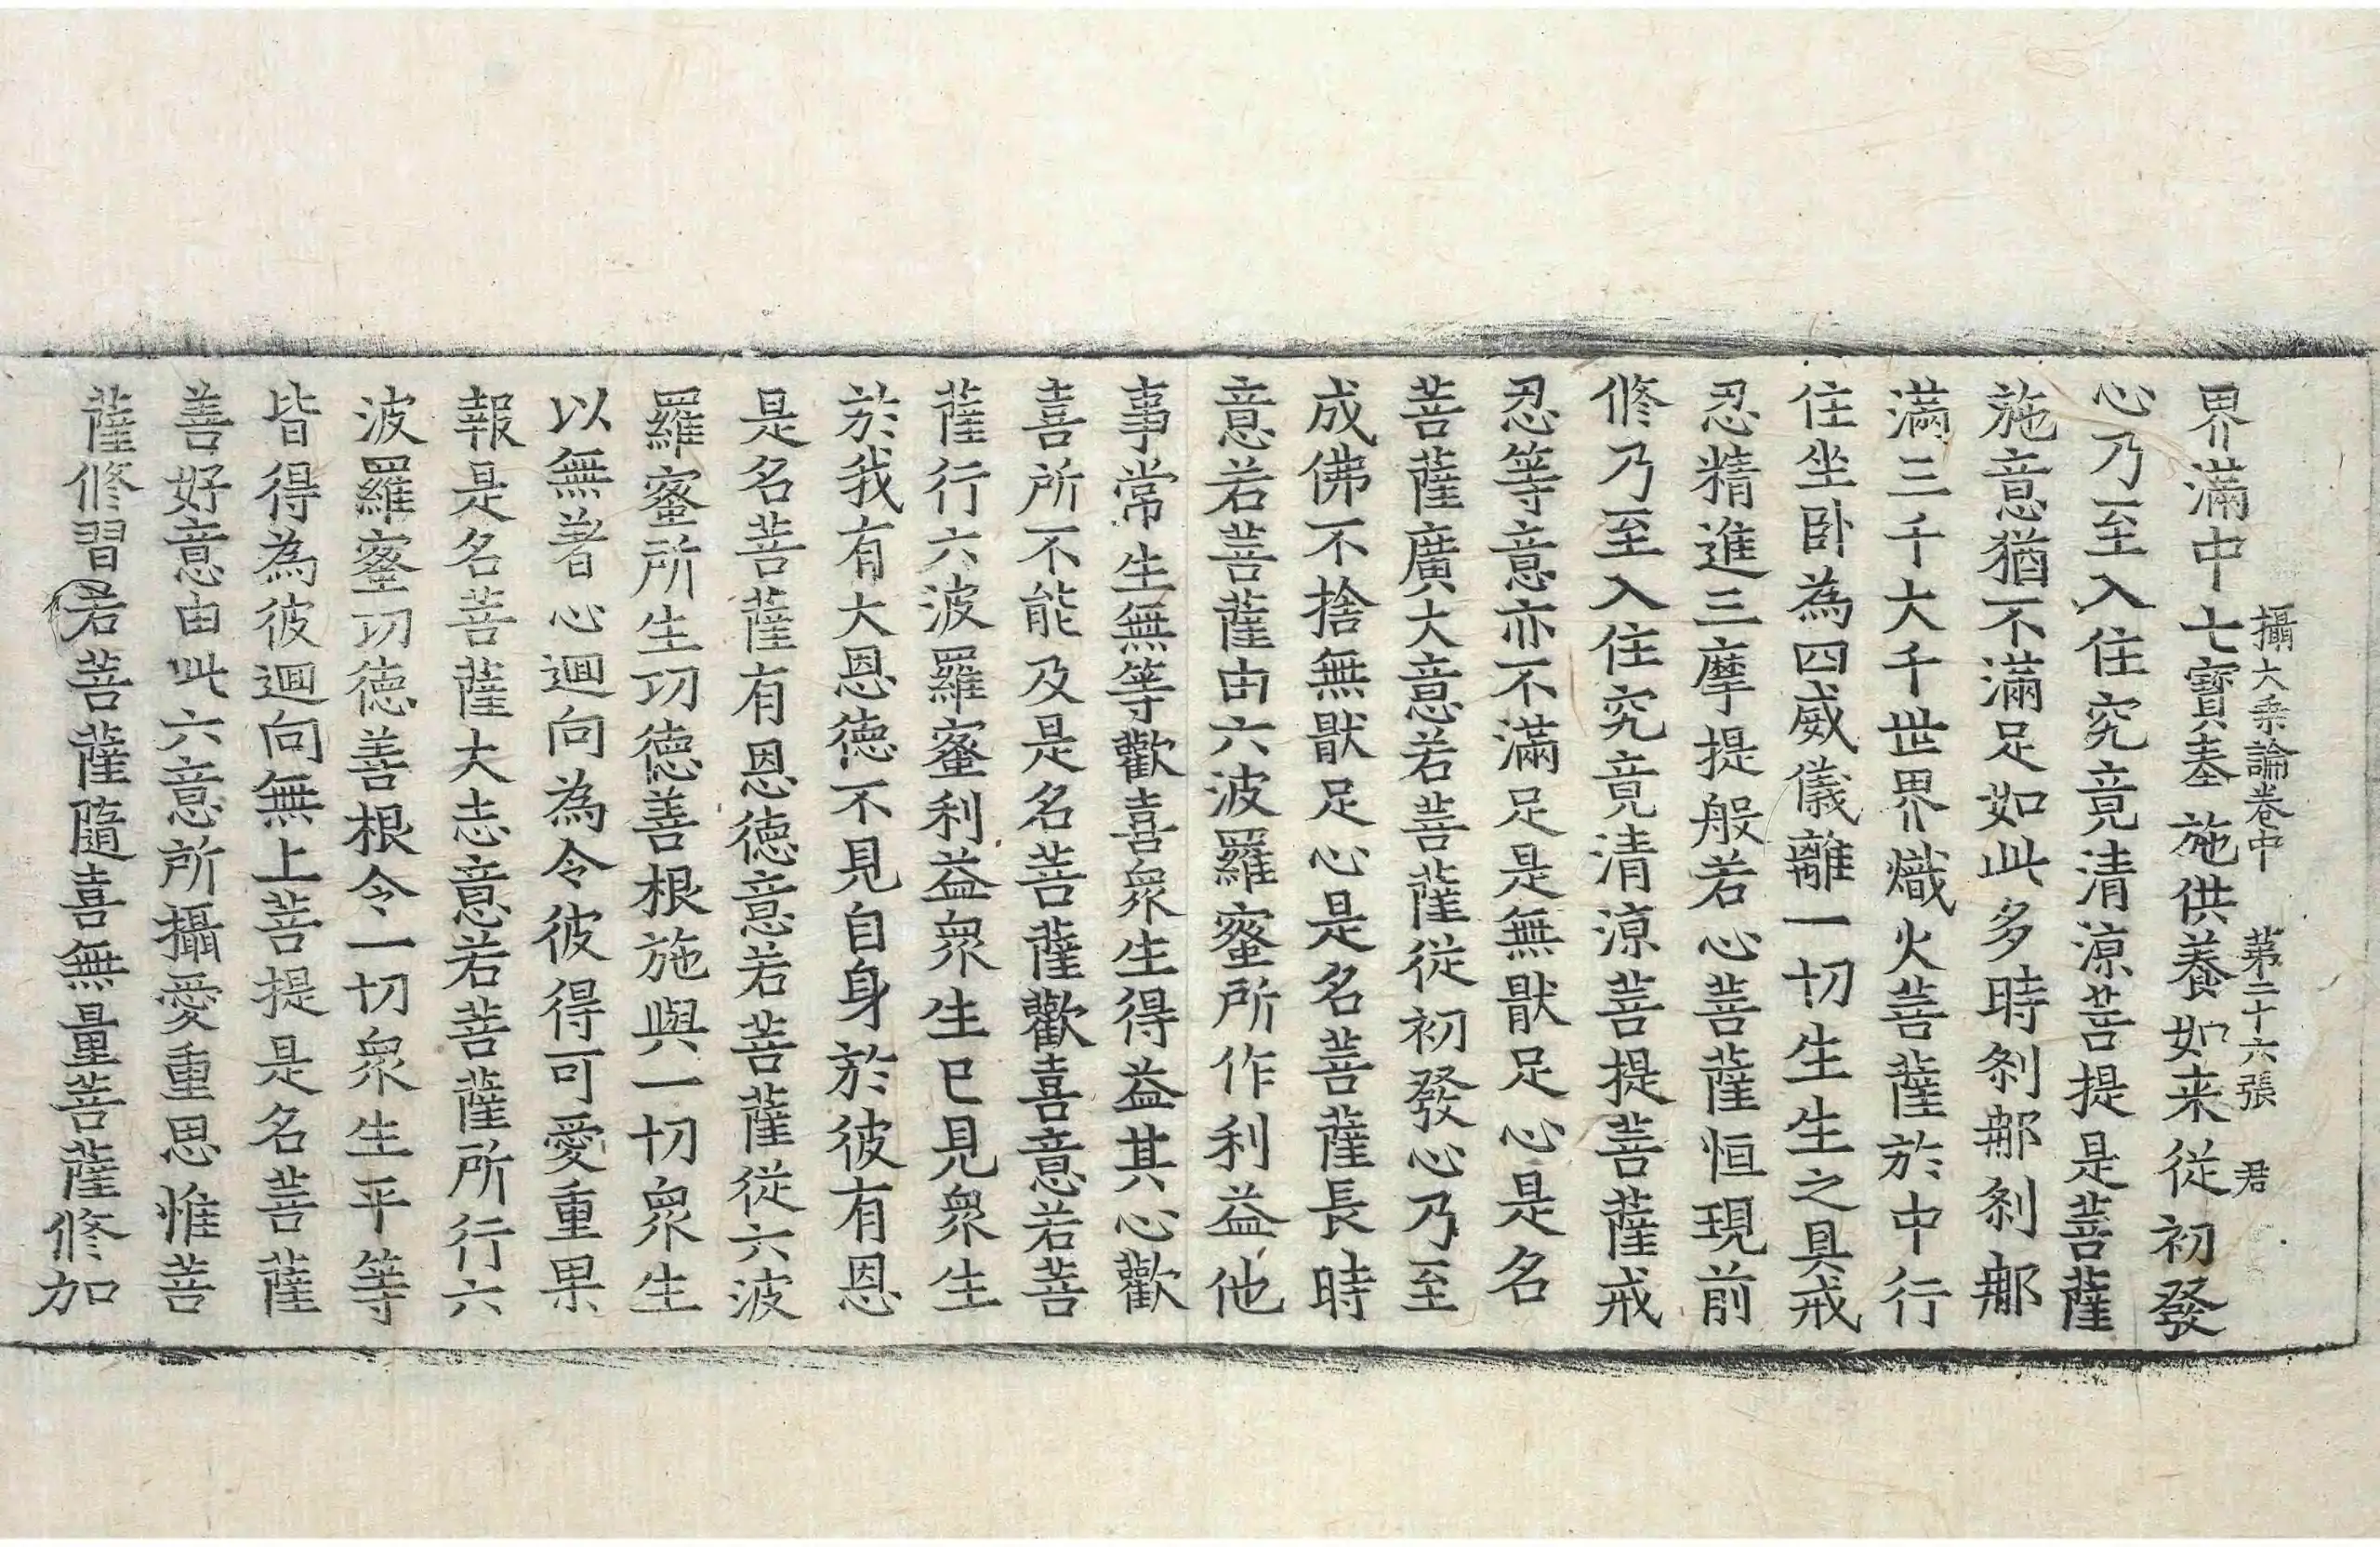 攝大乗論卷中 苐二十六張 君
界滿中七寶奉施供養如来從初發
心乃至入住究竟清涼菩提是菩薩
施意猶不滿足如此多時刹那刹那
滿三千大千世界熾火菩薩於中行
住坐卧為四威儀離一切生生之具戒
忍精進三摩提般若心菩薩恒現前
修乃至入住究竟清涼菩提菩薩戒
忍等意亦不滿足是無猒足心是名
菩薩廣大意若菩薩從初發心乃至
成佛不捨無猒足心是名菩薩長時
意若菩薩由六波羅蜜所作利益他
事常生無等歡喜衆生得益其心歡
喜所不能及是名菩薩歡喜意若菩
薩行六波羅蜜利益衆生已見衆生
於我有大恩德不見自身於彼有恩
是名菩薩有恩德意若菩薩從六波
羅蜜所生功德善根施與一切衆生
以無著心迴向為令彼得可愛重果
報是名菩薩大志意若菩薩所行六
波羅蜜功德善根令一切衆生平等
皆得為彼迴向無上菩提是名菩薩
善好意由此六意所攝愛重思惟菩
薩修習若菩薩隨喜無量菩薩修加